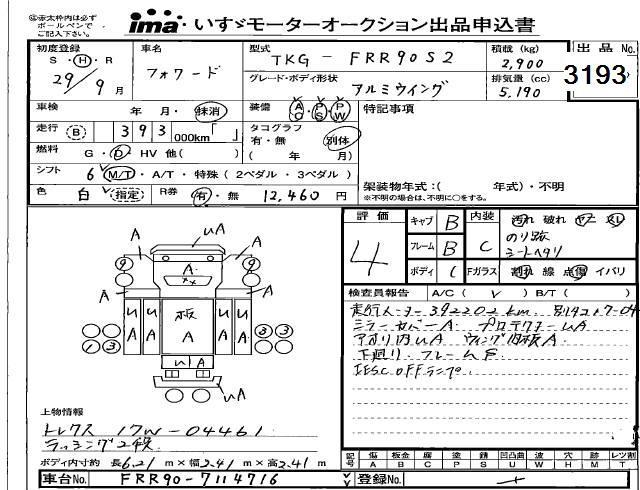 ㊟赤太枠内は必ず
ボールペンで
ご記入下さい。
ima いすゞモーターオークション出品申込書
初度登録 S・H・R 29/9月
車名 フォワード
型式 TKG-FRR90S2
積載(kg) 2,900
出品No. 3193
グレード・ボディ形状 アルミウイング
排気量(cc) 5,190
車検 年 月・抹消
装備 AC PS PW
特記事項
走行 B 393 000km「 」
タコグラフ 有・無 別体 ( 年 月)
燃料 G・D・HV 他( )
シフト 6 M/T・A/T・特殊(2ペダル・3ペダル)
架装物年式:( 年式)・不明
※不明の場合は、不明に○をする。
色 白 指定 R券 有・無 12,460円
評価 4
キャブ B
フレーム B
ボディ C
内装 C
Fガラス
汚れ 破れ ヤニ
のり跡
シートヘタリ
割れ 線 点傷 イバリ
検査員報告 A/C( ) B/T( )
走行メーター392202km
ミラーカバーA プロテクターUA
アオリ内UA ウィング内板A
下廻り・フレームS
IESC OFFランプ
UA
A A
A
9 9
A A
板
A
UA
3 3
1 3
UA
上物情報
トレクス 17W-04461
ラッシング2段
ボディ内寸約 長6.21m×幅2.41m×高2.41m
記号 傷A 板金B 腐C 塗P 錆S 凹凸曲U 波W 穴H 跡M レンズ割T
車台No. FRR90-7114716
登録No.